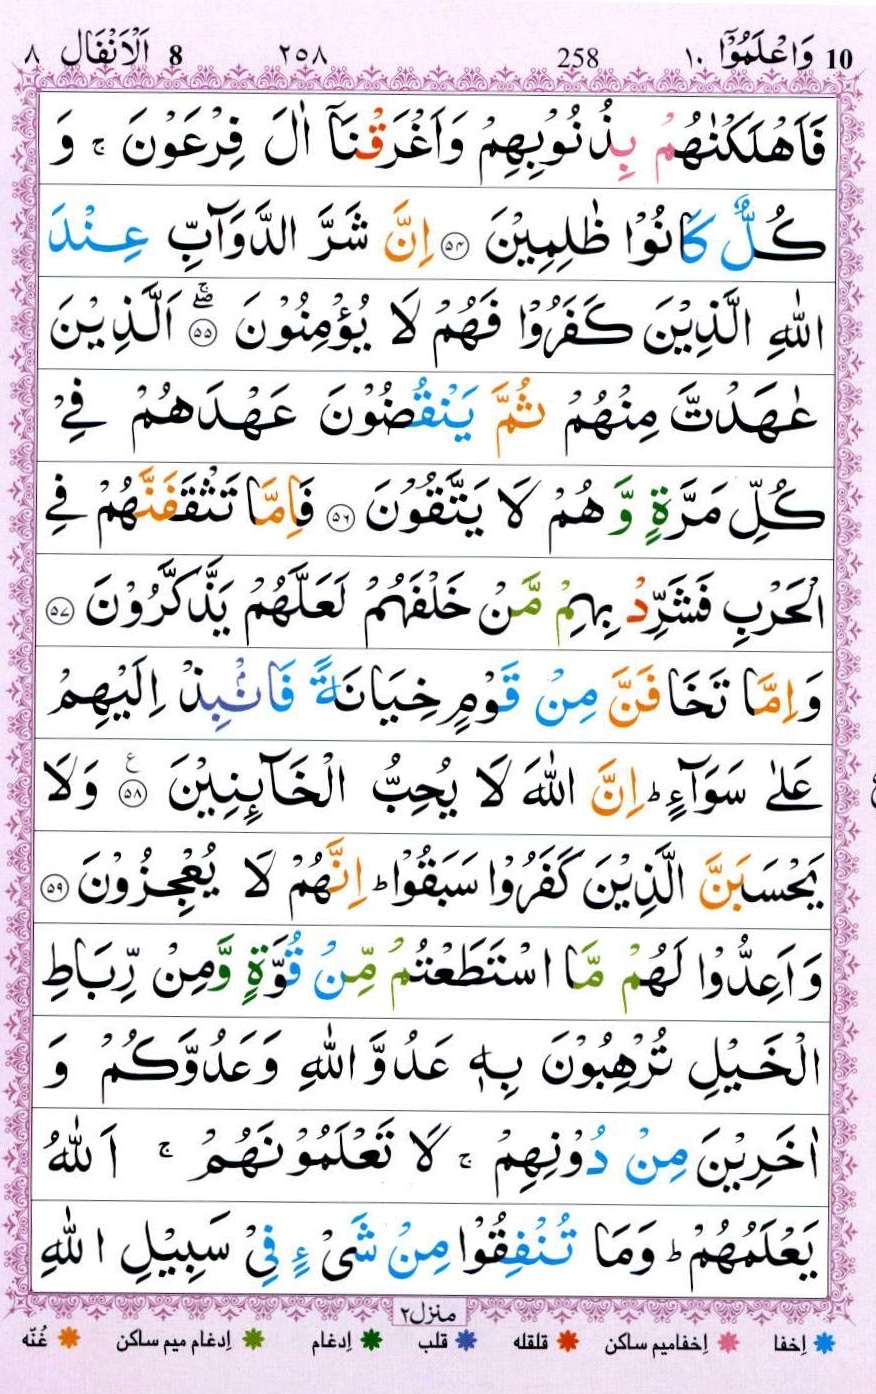 10 وَاعْلَمُوْٓا ١٠ 258 ٢٥٨ 8 اَلْاَنْفَال ٨
فَاَهْلَكْنٰهُمْ بِذُنُوْبِهِمْ وَاَغْرَقْنَآ اٰلَ فِرْعَوْنَ ۚ وَ
كُلٌّ كَانُوْا ظٰلِمِيْنَ ۝٥٤ اِنَّ شَرَّ الدَّوَآبِّ عِنْدَ
اللّٰهِ الَّذِيْنَ كَفَرُوْا فَهُمْ لَا يُؤْمِنُوْنَ ۝٥٥ ۖۚ اَلَّذِيْنَ
عٰهَدْتَّ مِنْهُمْ ثُمَّ يَنْقُضُوْنَ عَهْدَهُمْ فِيْ
كُلِّ مَرَّةٍ وَّهُمْ لَا يَتَّقُوْنَ ۝٥٦ فَاِمَّا تَثْقَفَنَّهُمْ فِي
الْحَرْبِ فَشَرِّدْ بِهِمْ مَّنْ خَلْفَهُمْ لَعَلَّهُمْ يَذَّكَّرُوْنَ ۝٥٧
وَاِمَّا تَخَافَنَّ مِنْ قَوْمٍ خِيَانَةً فَانْۢبِذْ اِلَيْهِمْ
عَلٰى سَوَآءٍ ؕ اِنَّ اللّٰهَ لَا يُحِبُّ الْخَآئِنِيْنَ ۝٥٨ ع وَلَا
يَحْسَبَنَّ الَّذِيْنَ كَفَرُوْا سَبَقُوْا ؕ اِنَّهُمْ لَا يُعْجِزُوْنَ ۝٥٩
وَاَعِدُّوْا لَهُمْ مَّا اسْتَطَعْتُمْ مِّنْ قُوَّةٍ وَّمِنْ رِّبَاطِ
الْخَيْلِ تُرْهِبُوْنَ بِهٖ عَدُوَّ اللّٰهِ وَعَدُوَّكُمْ وَ
اٰخَرِيْنَ مِنْ دُوْنِهِمْ ۚ لَا تَعْلَمُوْنَهُمْ ۚ اَللّٰهُ
يَعْلَمُهُمْ ؕ وَمَا تُنْفِقُوْا مِنْ شَيْءٍ فِيْ سَبِيْلِ اللّٰهِ
منزل٢
اِخفا اِخفامیم ساکن قلقله قلب اِدغام اِدغام میم ساکن غُنّه